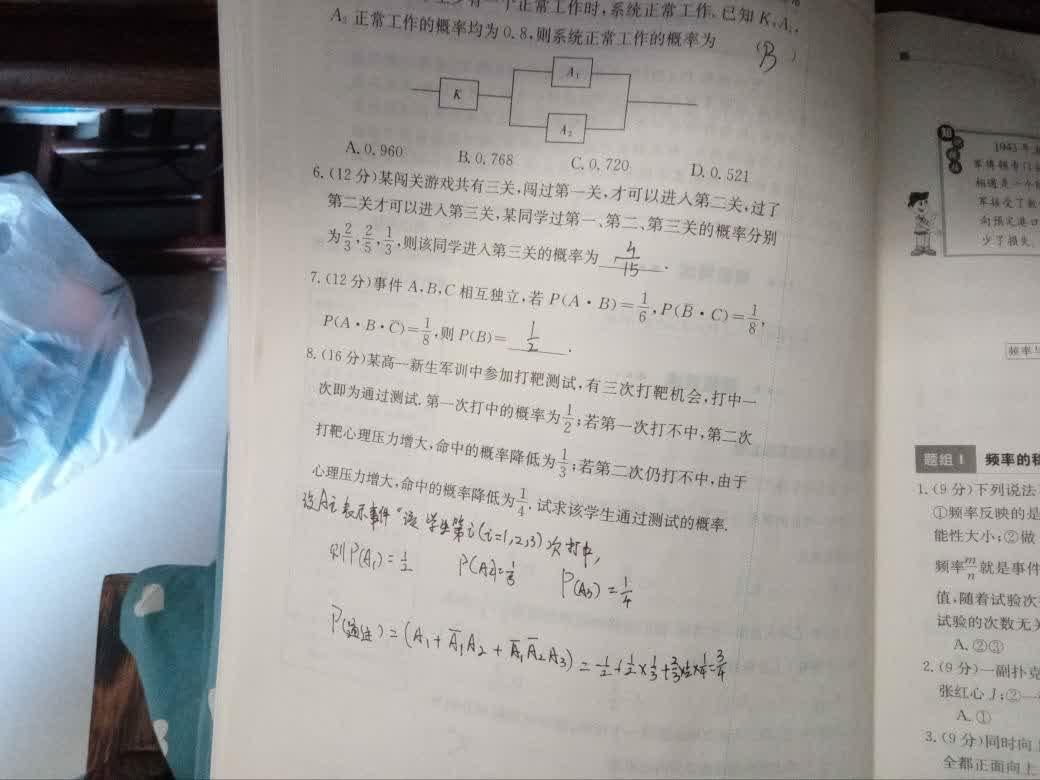 有一个正常工作时,系统正常工作.已知K,A₁,
A₂正常工作的概率均为0.8,则系统正常工作的概率为 (B)
A₁
K
A₂
A.0.960 B.0.768 C.0.720 D.0.521
6.(12分)某闯关游戏共有三关,闯过第一关,才可以进入第二关,过了
第二关才可以进入第三关,某同学过第一、第二、第三关的概率分别
为2/3,2/5,1/3,则该同学进入第三关的概率为 4/15 .
7.(12分)事件A,B,C相互独立,若P(A·B)=1/6,P(B̅·C)=1/8,
P(A·B·C̅)=1/8,则P(B)= 1/2 .
8.(16分)某高一新生军训中参加打靶测试,有三次打靶机会,打中一
次即为通过测试.第一次打中的概率为1/2;若第一次打不中,第二次
打靶心理压力增大,命中的概率降低为1/3;若第二次仍打不中,由于
心理压力增大,命中的概率降低为1/4.试求该学生通过测试的概率.
设Ai表示事件“该学生第i(i=1,2,3)次打中,
则P(A₁)=1/2 P(A₂)=1/3 P(A₃)=1/4
P(通过)=(A₁+A̅₁A₂+A̅₁A̅₂A₃)=1/2+1/2×1/3+2/3×1/2×1/4=3/4
1943年
军将领专门
相遇是一个
军接受了
向预定港口
少了损失
频率与
题组1 频率的
1.(9分)下列说法
①频率反映的是
能性大小;②做
频率m/n就是事件
值,随着试验次
试验的次数无关
A.②③
2.(9分)一副扑克
张红心J;②一
A.①
3.(9分)同时向
全都正面向上